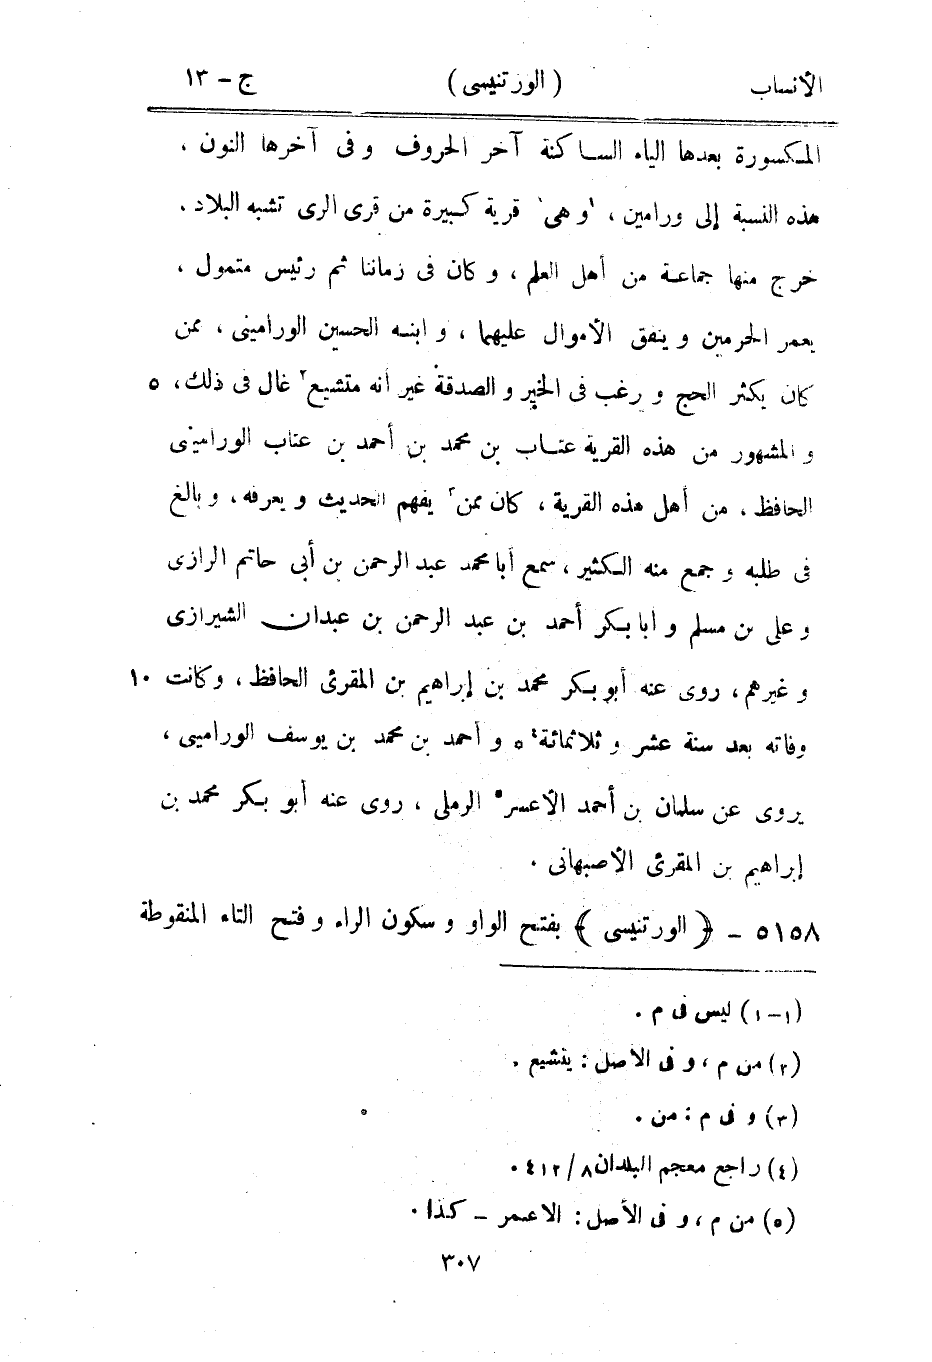 الأنساب ( الورتنيسى ) ج – ١٣
المكسورة بعدها الياء الساكنة آخر الحروف و فى آخرها النون ،
هذه النسبة إلى ورامين ، ' و هى ' قرية كبيرة من قرى الرى تشبه البلاد .
خرج منها جماعة من أهل العلم ، و كان فى زماننا ثم رئيس متمول ،
يعمر الحرمين و ينفق الأموال عليهما ، و ابنه الحسين الورامينى ، ممن
كان يكثر الحج و رغب فى الخير و الصدقة غير أنه متشيع٢ غال فى ذلك ، ٥
و المشهور من هذه القرية عتاب بن محمد بن أحمد بن عتاب الورامينى
الحافظ ، من أهل هذه القرية ، كان ممن٣ يفهم الحديث و يعرفه ، و بالغ
فى طلبه و جمع منه الكثير ، سمع أبا محمد عبد الرحمن بن أبى حاتم الرازى
و على بن مسلم و أبا بكر أحمد بن عبد الرحمن بن عبدان الشيرازى
و غيرهم ، روى عنه أبو بكر محمد بن إبراهيم بن المقرئ الحافظ ، وكانت ١٠
وفاته بعد سنة عشر و ثلاثمائة٤ ٥ و أحمد بن محمد بن يوسف الورامينى ،
يروى عن سلمان بن أحمد الأعسر٥ الرملى ، روى عنه أبو بكر محمد بن
إبراهيم بن المقرئ الأصبهانى .
٥١٥٨ – ﴿ الورتنيسى ﴾ بفتح الواو و سكون الراء و فتح التاء المنقوطة
(١–١) ليس فى م .
(٢) من م ، و فى الأصل : يتشيع .
(٣) و فى م : من .
(٤) راجع معجم البلدان ٨ / ٤١٢ .
(٥) من م ، و فى الأصل : الاعمر – كذا .
٣٠٧